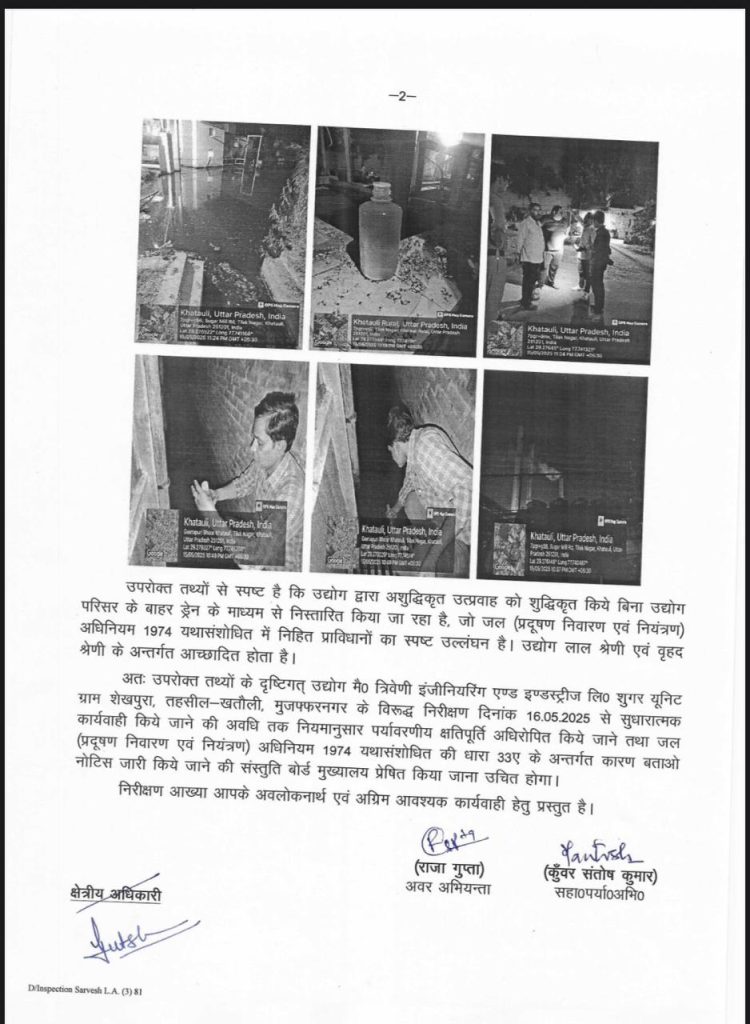 —2—
GPS Map Camera
Khatauli, Uttar Pradesh, India
Uttar Pradesh 251201, India
Google
GPS Map Camera
Khatauli Rural, Uttar Pradesh, India
Google
GPS Map Camera
Khatauli, Uttar Pradesh, India
251201, India
Google
GPS Map Camera
Khatauli, Uttar Pradesh, India
Uttar Pradesh 251201, India
Google
GPS Map Camera
Khatauli, Uttar Pradesh, India
Uttar Pradesh 251201, India
Google
GPS Map Camera
Khatauli, Uttar Pradesh, India
Google
उपरोक्त तथ्यों से स्पष्ट है कि उद्योग द्वारा अशुद्धिकृत उत्प्रवाह को शुद्धिकृत किये बिना उद्योग
परिसर के बाहर ड्रेन के माध्यम से निस्तारित किया जा रहा है, जो जल (प्रदूषण निवारण एवं नियंत्रण)
अधिनियम 1974 यथासंशोधित में निहित प्राविधानों का स्पष्ट उल्लंघन है। उद्योग लाल श्रेणी एवं वृहद
श्रेणी के अन्तर्गत आच्छादित होता है।
अतः उपरोक्त तथ्यों के दृष्टिगत् उद्योग मै0 त्रिवेणी इंजीनियरिंग एण्ड इण्डस्ट्रीज लि0 शुगर यूनिट
ग्राम शेखपुरा, तहसील-खतौली, मुजफ्फरनगर के विरूद्ध निरीक्षण दिनांक 16.05.2025 से सुधारात्मक
कार्यवाही किये जाने की अवधि तक नियमानुसार पर्यावरणीय क्षतिपूर्ति अधिरोपित किये जाने तथा जल
(प्रदूषण निवारण एवं नियंत्रण) अधिनियम 1974 यथासंशोधित की धारा 33ए के अन्तर्गत कारण बताओ
नोटिस जारी किये जाने की संस्तुति बोर्ड मुख्यालय प्रेषित किया जाना उचित होगा।
निरीक्षण आख्या आपके अवलोकनार्थ एवं अग्रिम आवश्यक कार्यवाही हेतु प्रस्तुत है।
(राजा गुप्ता)
अवर अभियन्ता
(कुँवर संतोष कुमार)
सहा0पर्या0अभि0
क्षेत्रीय अधिकारी
D/Inspection Sarvesh L.A. (3) 81